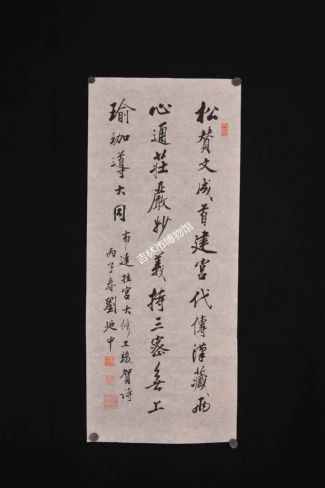 松赞文成首建宫代传汉藏两
心通莊嚴妙義持三密無上
瑜珈導大同
布達拉宫大修工竣賀詩
丙子春劉迎中
吉林市博物馆